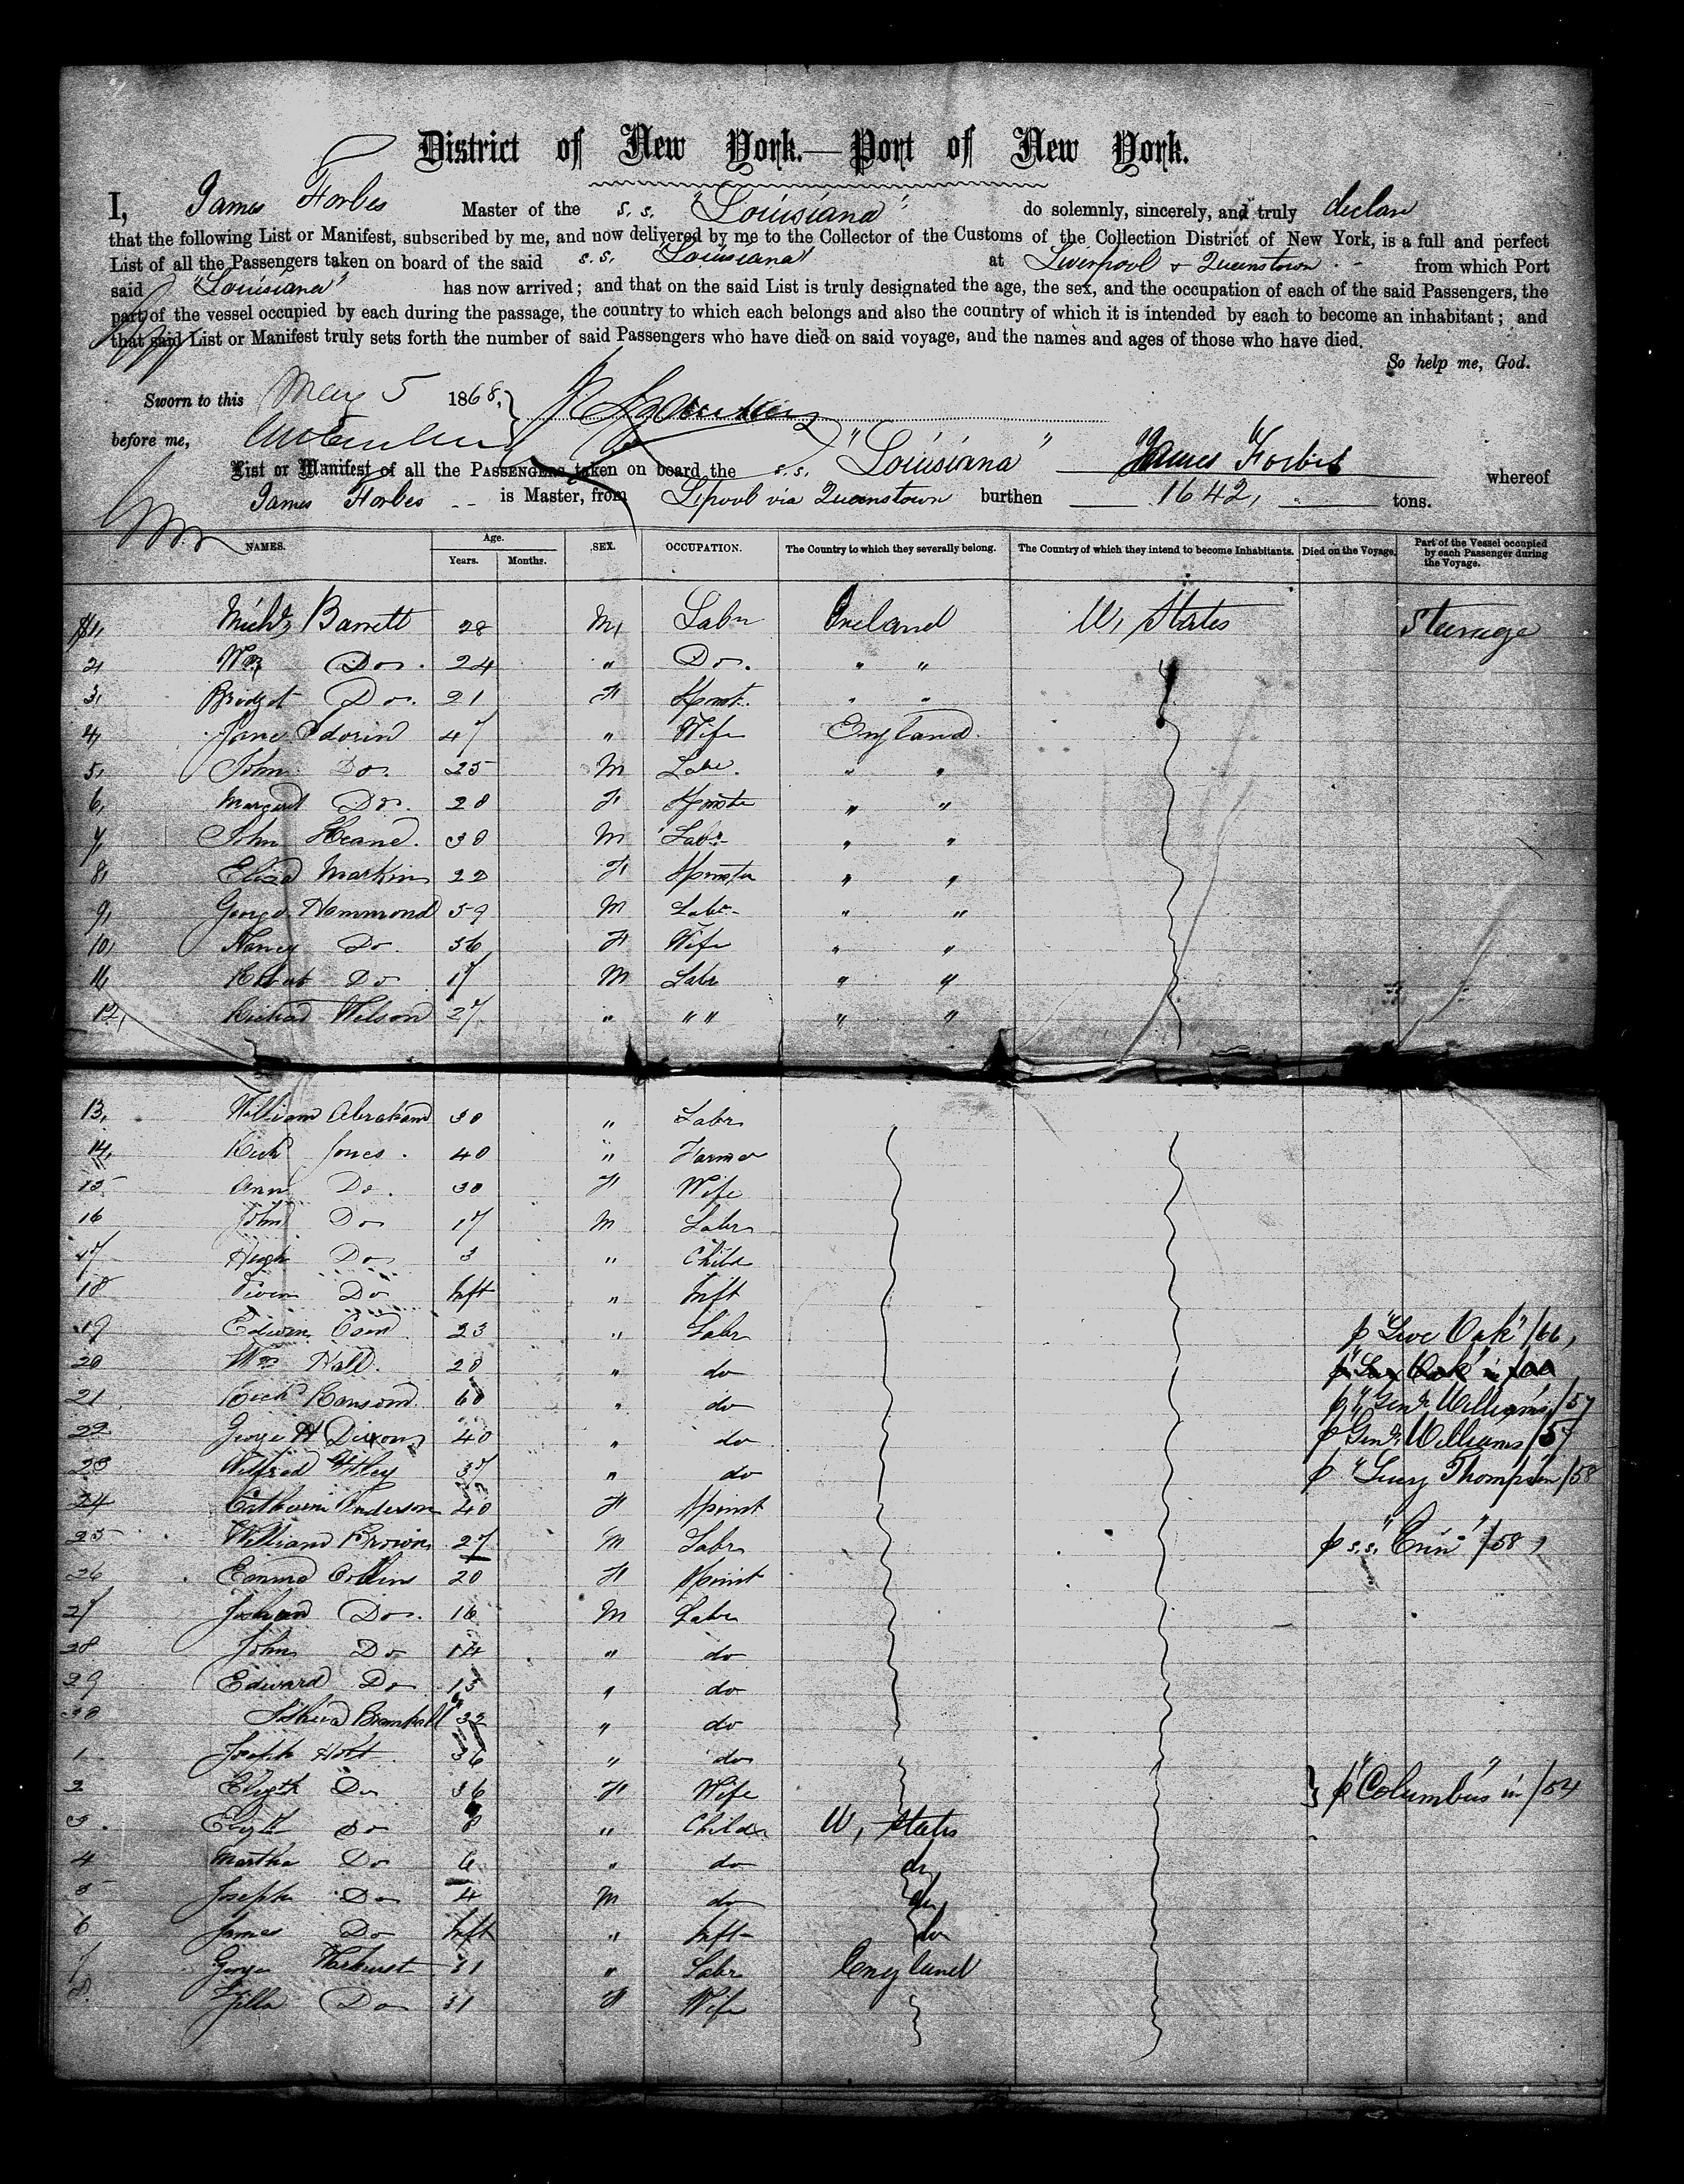 District of New York.—Port of New York.
I, James Forbes Master of the s.s. "Louisiana" do solemnly, sincerely, and truly declare
that the following List or Manifest, subscribed by me, and now delivered by me to the Collector of the Customs of the Collection District of New York, is a full and perfect
List of all the Passengers taken on board of the said s.s. Louisiana" at Liverpool & Queenstown from which Port
said "Louisiana" has now arrived; and that on the said List is truly designated the age, the sex, and the occupation of each of the said Passengers, the
part of the vessel occupied by each during the passage, the country to which each belongs and also the country of which it is intended by each to become an inhabitant; and
that said List or Manifest truly sets forth the number of said Passengers who have died on said voyage, and the names and ages of those who have died.
So help me, God.
Sworn to this May 5 1868,
before me,
List or Manifest of all the PASSENGERS taken on board the s.s. "Louisiana" James Forbes whereof
James Forbes is Master, from Lpool via Queenstown burthen 1642, tons.
NAMES. Age. Years. Months. SEX. OCCUPATION. The Country to which they severally belong. The Country of which they intend to become Inhabitants. Died on the Voyage. Part of the Vessel occupied by each Passenger during the Voyage.
1, Michl Barrett 28 M, Labr Ireland U, States Steerage
2, Wm Do. 24 " Do. " "
3, Bridget Do. 21 F Spinst. " "
4, Jane 47 " Wife England.
5, John Do. 25 M Labr. " "
6, Margaret Do. 20 F Spinster " "
7, John Heane. 30 M Labr " "
8, Eliza Markin 22 F Spinster " "
9, George Hammond 59 M Labr " "
10, Nancy Do. 56 F Wife " "
11, Robert Do 17 M Labr " "
12, Richard Wilson 27 " " " " "
13, William Abraham 30 " Labr
14, Richd Jones. 40 " Farmer
15 Ann Do. 30 F Wife
16 John Do 17 M Labr
17 Hugh Do 3 " Child
18 Do Inft " Inft
19 Edwin 23 " Labr p "Live Oak" /66,
20 Wm Hall. 20 " do
21 Richd Ransom 60 " do p "Genl Williams /57
22 George H Dixon 40 " do p Genl Williams /57
23 Wilfred 37 " do p "Lucy Thompson /58
24 Catherine Anderson 40 F Spinst
25 William Brown 27 M Labr p s.s. "Erin" /58,
26 Emma Collins 20 F Spinst
27 Do. 16 M Labr
28 John Do 14 " do
29 Edward Do 13 " do
30 Joshua Bramhall 32 " do
1 Joseph Holt 36 " do
2 Elizth Do 36 F Wife p "Columbus" in /54
3. Elizth do 8 " Child U, States
4 Martha Do 6 " do do
5 Joseph Do 4 M do do
6 James Do Inft " Inft do
7 George 31 " Labr England
8. Zilla Do 31 F Wife